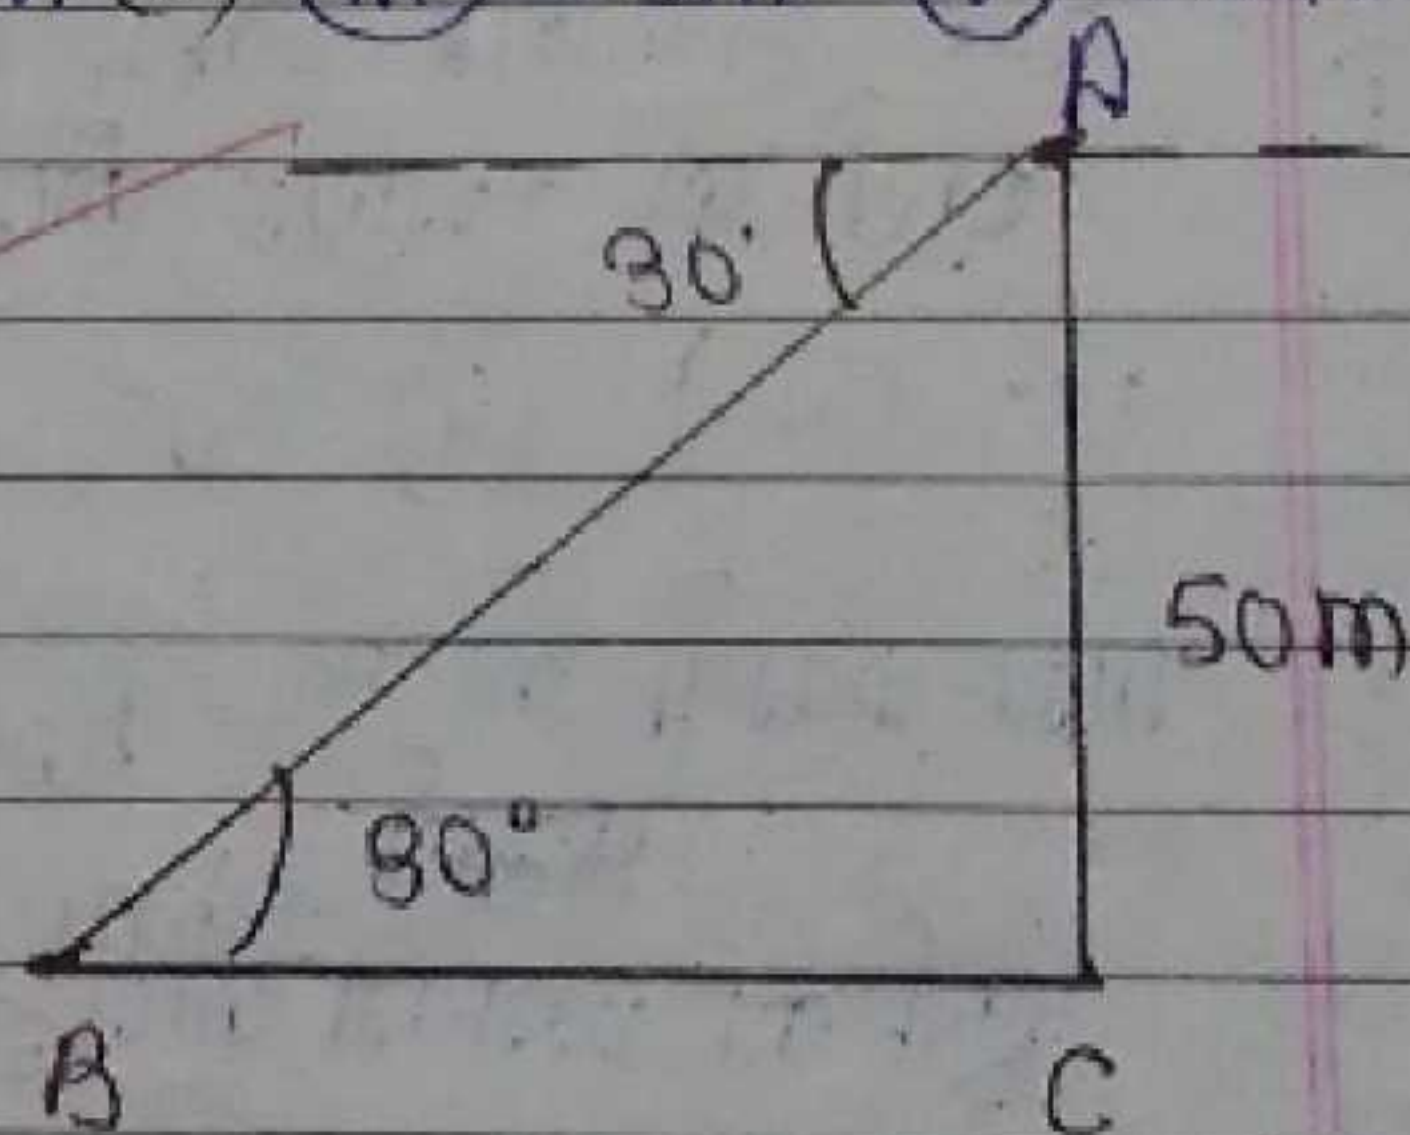 A
30°
50m
30°
B
C